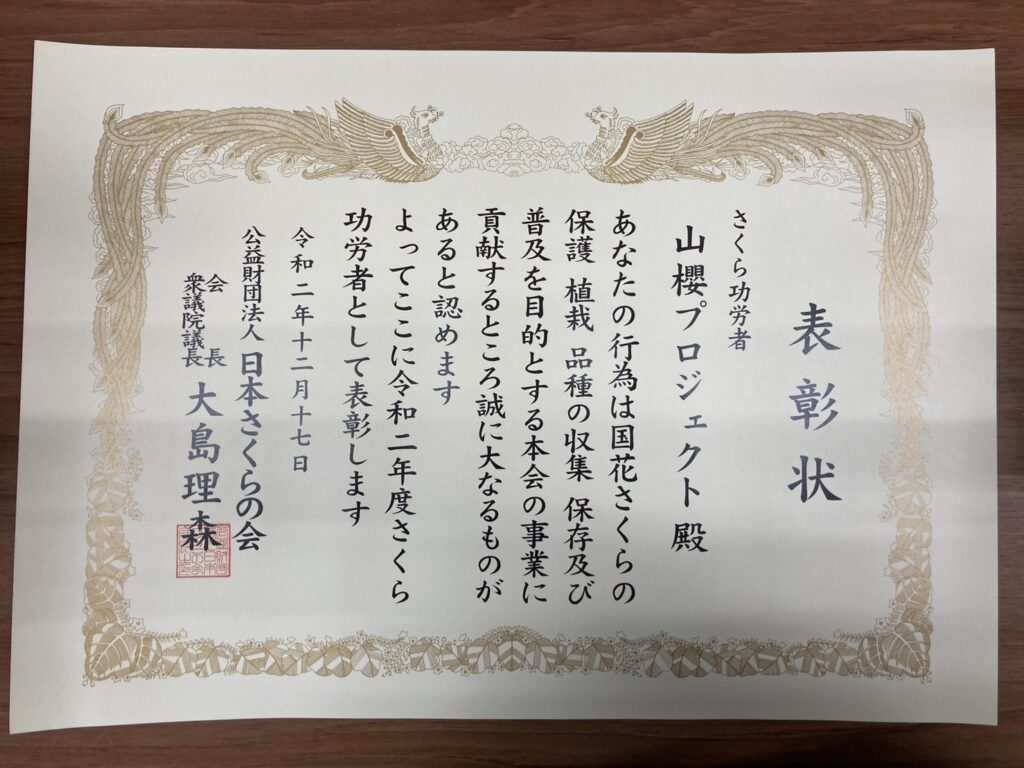 表彰状
さくら功労者
山櫻プロジェクト殿
あなたの行為は国花さくらの
保護 植栽 品種の収集 保存及び
普及を目的とする本会の事業に
貢献するところ誠に大なるものが
あると認めます
よってここに令和二年度さくら
功労者として表彰します
令和二年十二月十七日
公益財団法人 日本さくらの会
会長
衆議院議長
大島理森